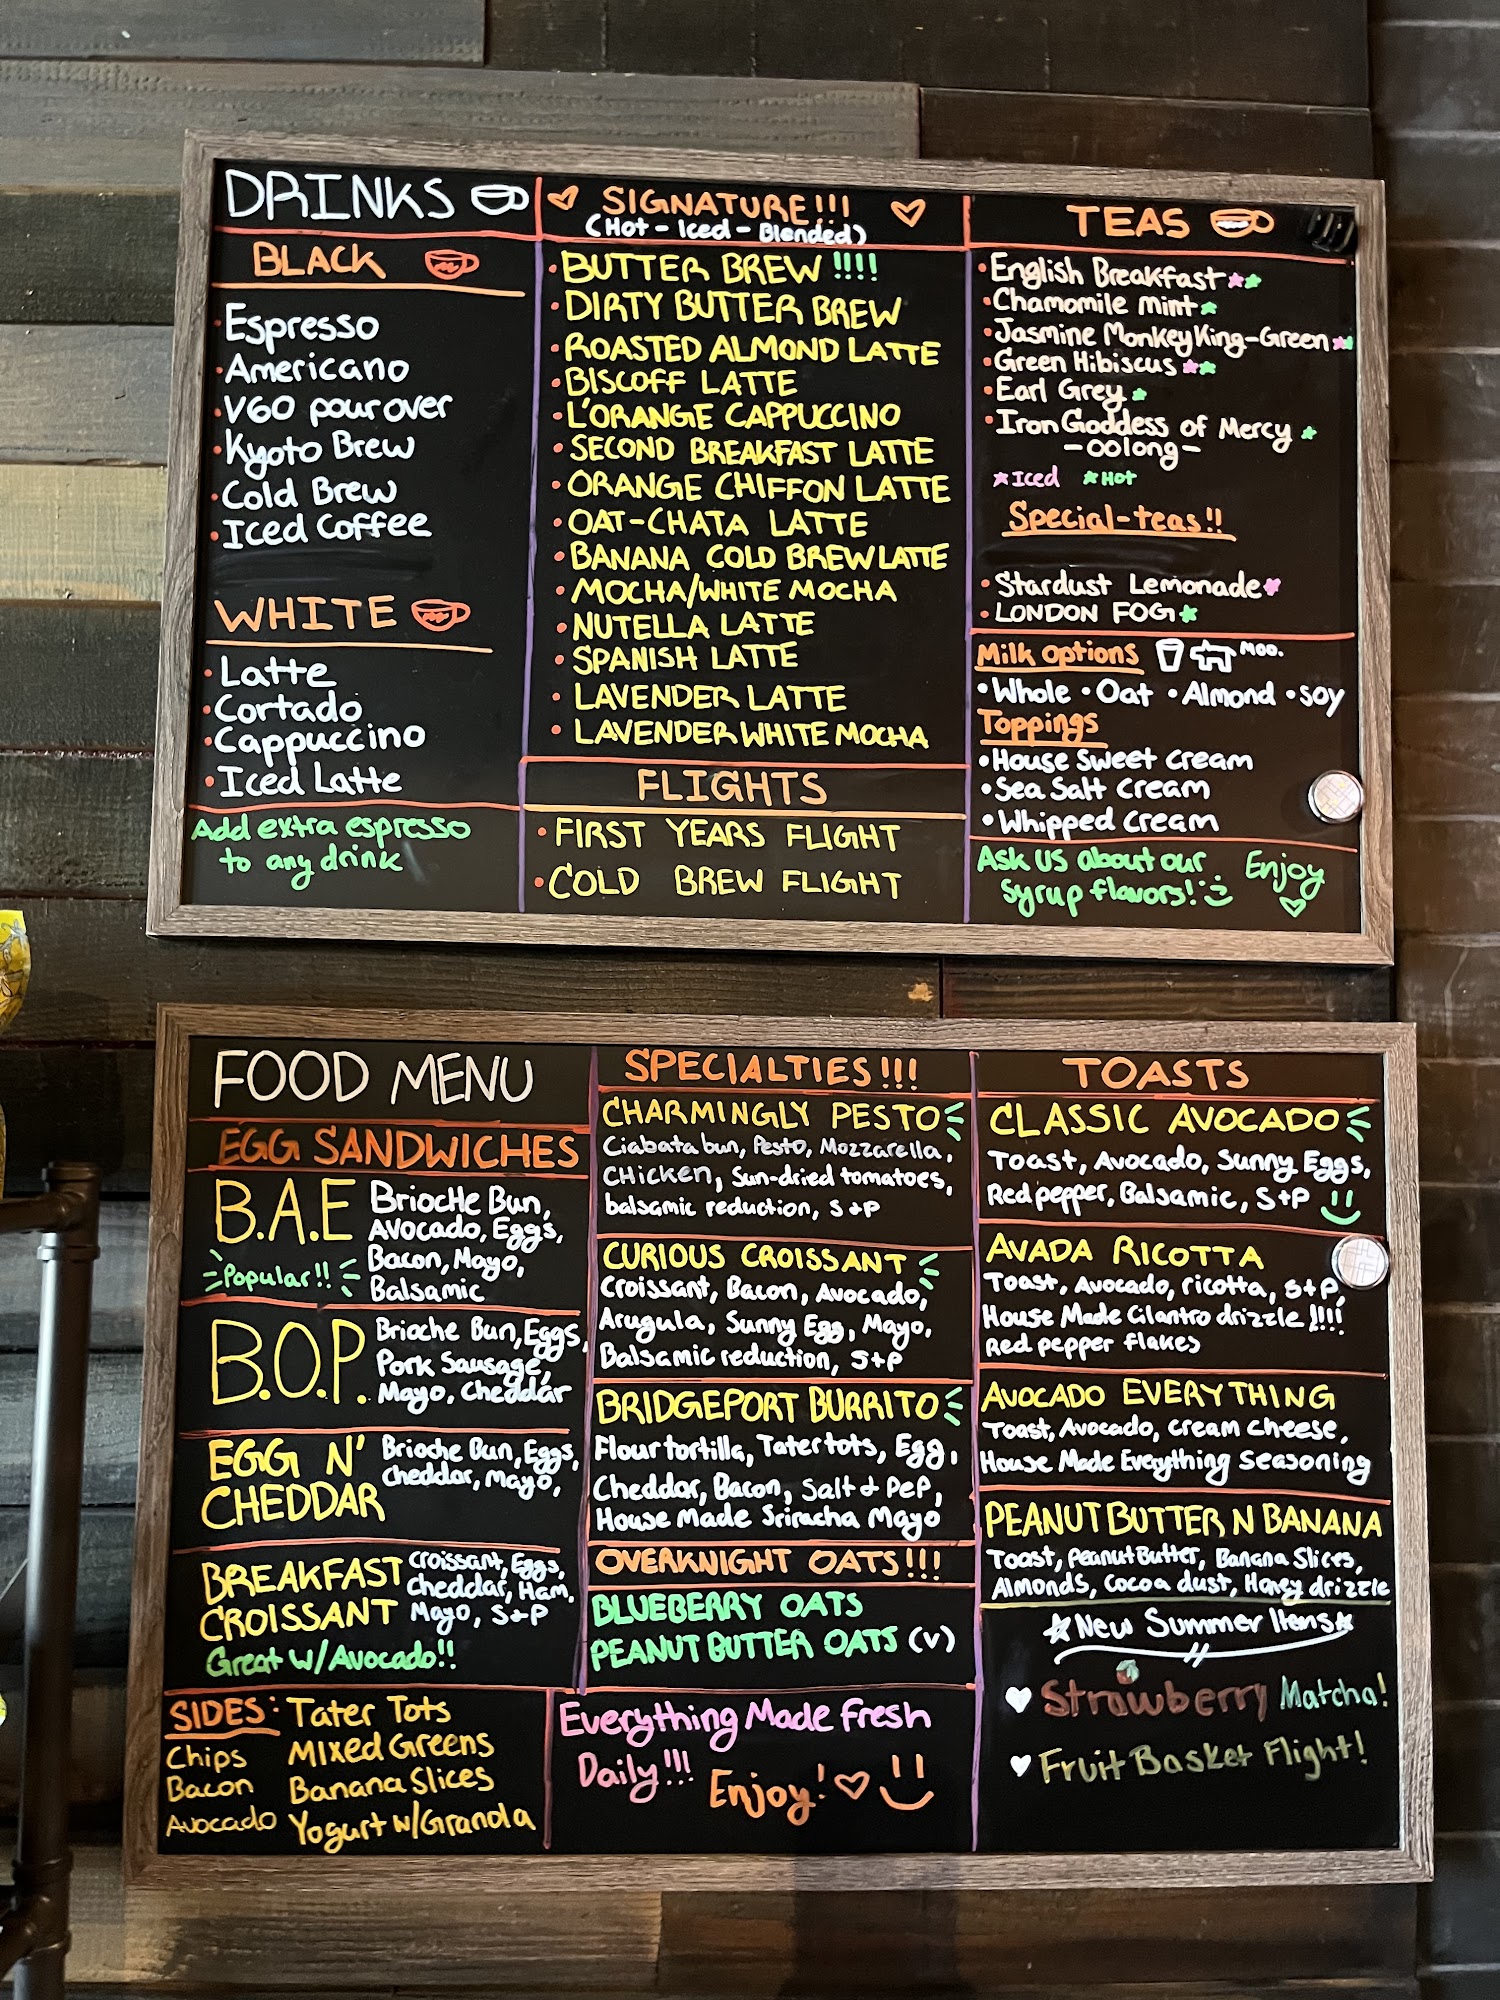 DRINKS
BLACK
• Espresso
• Americano
• V60 pour over
• Kyoto Brew
• Cold Brew
• Iced Coffee
WHITE
• Latte
• Cortado
• Cappuccino
• Iced Latte
Add extra espresso
to any drink
SIGNATURE!!!
(Hot - Iced - Blended)
• BUTTER BREW !!!!
• DIRTY BUTTER BREW
• ROASTED ALMOND LATTE
• BISCOFF LATTE
• L'ORANGE CAPPUCCINO
• SECOND BREAKFAST LATTE
• ORANGE CHIFFON LATTE
• OAT-CHATA LATTE
• BANANA COLD BREW LATTE
• MOCHA/WHITE MOCHA
• NUTELLA LATTE
• SPANISH LATTE
• LAVENDER LATTE
• LAVENDER WHITE MOCHA
FLIGHTS
• FIRST YEARS FLIGHT
• COLD BREW FLIGHT
TEAS
• English Breakfast
• Chamomile mint
• Jasmine Monkey King-Green
• Green Hibiscus
• Earl Grey
• Iron Goddess of Mercy
- oolong -
Iced Hot
Special-teas!!
• Stardust Lemonade
• LONDON FOG
Milk options MOO.
• Whole • Oat • Almond • soy
Toppings
• House Sweet cream
• Sea Salt cream
• Whipped cream
Ask us about our
syrup flavors!
Enjoy
FOOD MENU
EGG SANDWICHES
B.A.E
Brioche Bun,
Avocado, Eggs,
Bacon, Mayo,
Balsamic
Popular!!
B.O.P.
Brioche Bun, Eggs,
Pork Sausage,
Mayo, Cheddar
EGG N'
CHEDDAR
Brioche Bun, Eggs,
Cheddar, Mayo,
BREAKFAST
CROISSANT
Croissant, Eggs,
Cheddar, Ham,
Mayo, S+P
Great w/Avocado!!
SIDES: Tater Tots
Chips Mixed Greens
Bacon Banana Slices
Avocado Yogurt w/Granola
SPECIALTIES!!!
CHARMINGLY PESTO
Ciabata bun, Pesto, Mozzarella,
Chicken, Sun-dried tomatoes,
balsamic reduction, S+P
CURIOUS CROISSANT
Croissant, Bacon, Avocado,
Arugula, Sunny Egg, Mayo,
Balsamic reduction, S+P
BRIDGEPORT BURRITO
Flour tortilla, Tater tots, Egg,
Cheddar, Bacon, Salt & Pep,
House Made Sriracha Mayo
OVERKNIGHT OATS!!!
BLUEBERRY OATS
PEANUT BUTTER OATS (V)
Everything Made Fresh
Daily!!!
Enjoy!
TOASTS
CLASSIC AVOCADO
Toast, Avocado, Sunny Eggs,
Red pepper, Balsamic, S+P
AVADA RICOTTA
Toast, Avocado, ricotta, S+P,
House Made Cilantro drizzle !!!!
Red pepper flakes
AVOCADO EVERYTHING
Toast, Avocado, cream cheese,
House Made Everything seasoning
PEANUT BUTTER N BANANA
Toast, Peanut Butter, Banana Slices,
Almonds, Cocoa dust, Honey drizzle
New Summer Items
Strawberry Matcha!
Fruit Basket Flight!